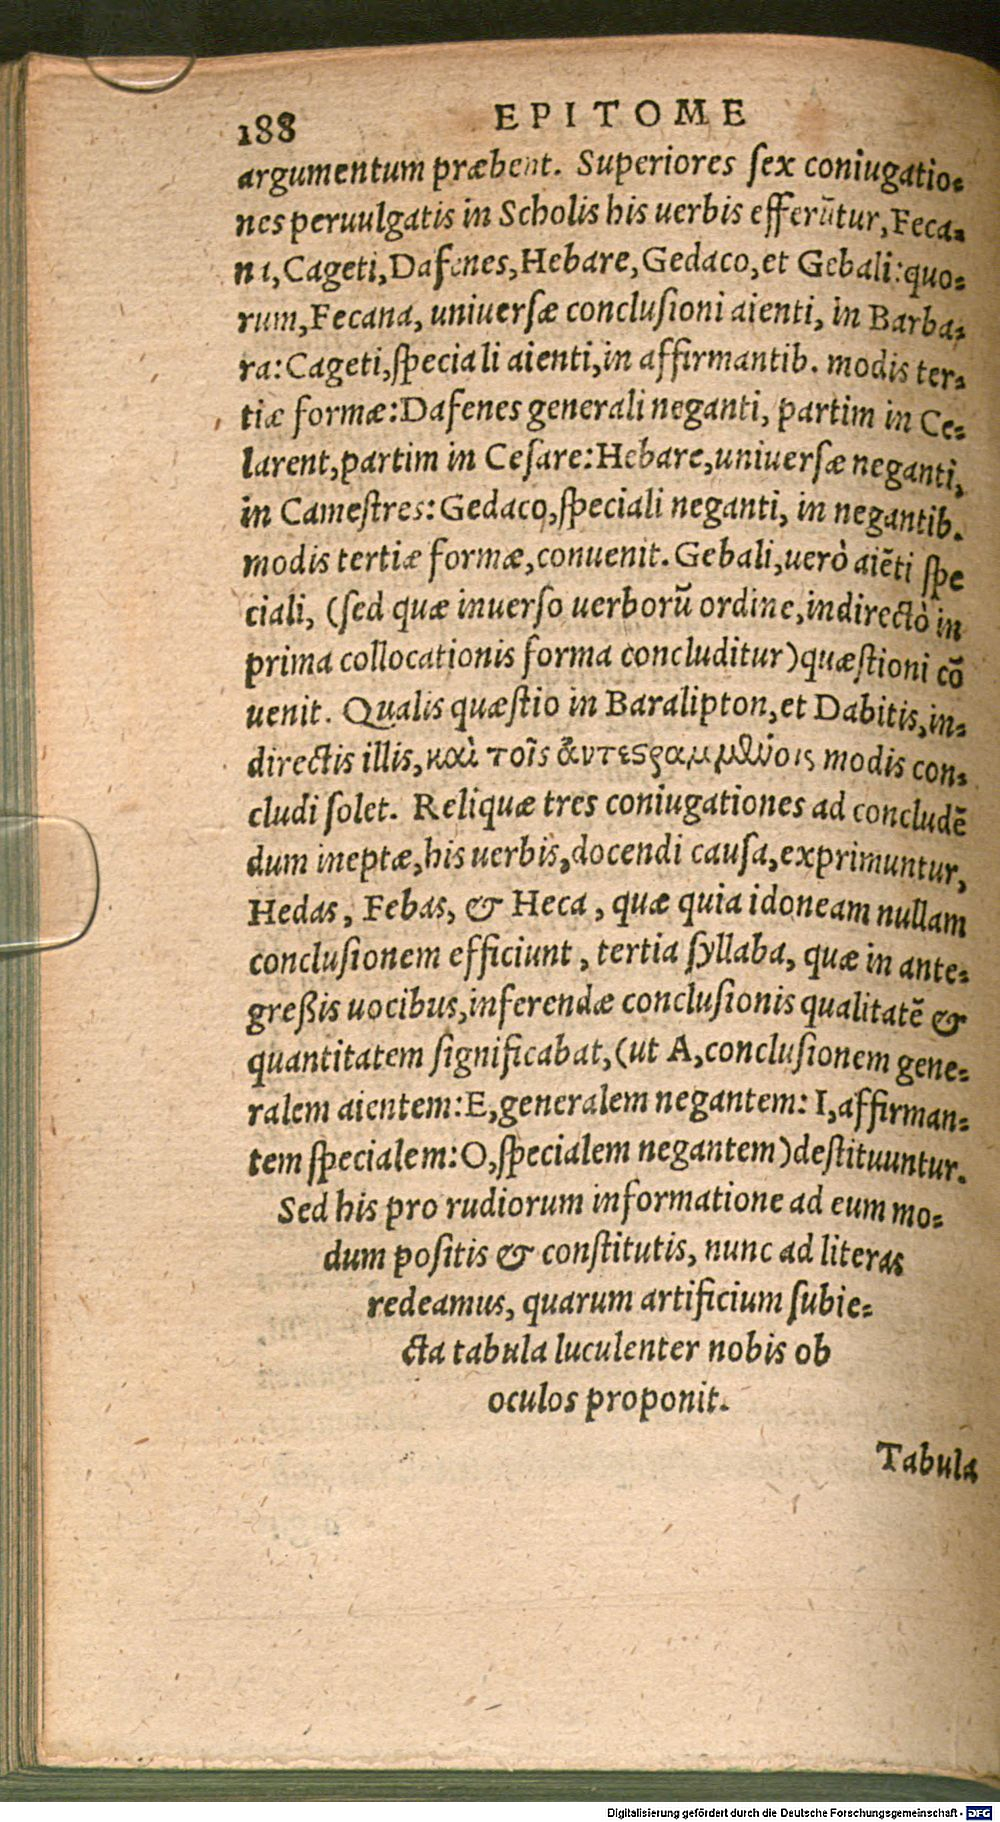 188 EPITOME
argumentum præbent. Superiores ſex coniugatio⸗
nes peruulgatis in Scholis his uerbis efferũtur, Feca⸗
ni, Cageti, Dafenes, Hebare, Gedaco, et Gebali: quo⸗
rum, Fecana, uniuerſæ concluſioni aienti, in Barba⸗
ra: Cageti, ſpeciali aienti, in affirmantib. modis ter⸗
tiæ formæ: Dafenes generali neganti, partim in Ce⸗
larent, partim in Ceſare: Hebare, uniuerſæ neganti,
in Cameſtres: Gedaco, ſpeciali neganti, in negantib.
modis tertiæ formæ, conuenit. Gebali, uerò aiẽti ſpe
ciali, (ſed quæ inuerſo uerborũ ordine, indirectò in
prima collocationis forma concluditur) quæſtioni cõ
uenit. Qualis quæſtio in Baralipton, et Dabitis, in⸗
directis illis, καὶ τοῖς ἀντεϛραμμένοις modis con⸗
cludi ſolet. Reliquæ tres coniugationes ad concludẽ
dum ineptæ, his uerbis, docendi cauſa, exprimuntur,
Hedas, Febas, & Heca, quæ quia idoneam nullam
concluſionem efficiunt, tertia ſyllaba, quæ in ante⸗
greßis uocibus, inferendæ concluſionis qualitatẽ &
quantitatem ſignificabat, (ut A, concluſionem gene⸗
ralem aientem: E, generalem negantem: I, affirman⸗
tem ſpecialem: O, ſpecialem negantem) deſtituuntur.
Sed his pro rudiorum informatione ad eum mo⸗
dum poſitis & conſtitutis, nunc ad literas
redeamus, quarum artificium ſubie⸗
cta tabula luculenter nobis ob
oculos proponit.
Tabula
Digitalisierung gefördert durch die Deutsche Forschungsgemeinschaft - DFG